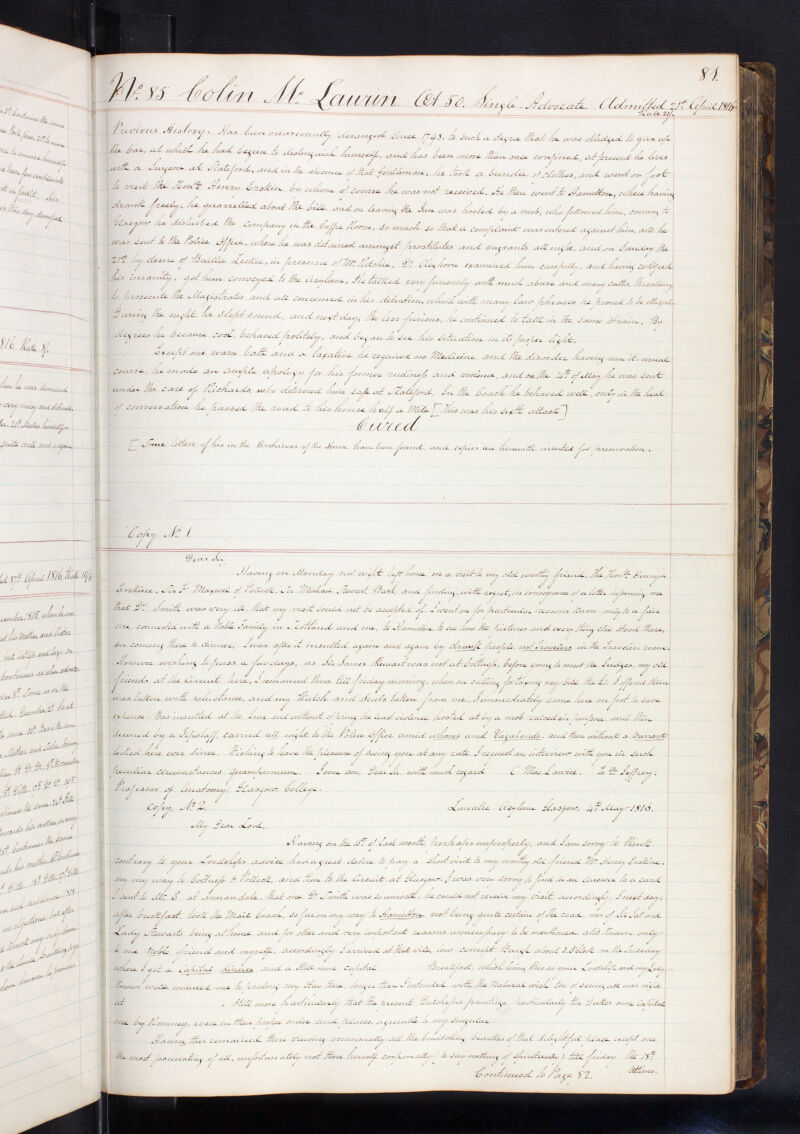 81.
No. 85 Colin Mc Laurin Æt 50. Single. Advocate. Admitted 21st April 1816
Rate 21/.
Previous History. Has been occasionally deranged since 1798. to such a degree that he was obliged to give up
the bar, at which he had begun to distinguish himself, and has been more than once confined, at present he lives
with a Surgeon at Slateford, and in the absence of that Gentleman, he took a bundle of clothes, and went on foot
to visit the Honble Henry Erskine by whom of course he was not received. He then went to Hamilton, where having
drank freely, he quarrelled about the bill and on leaving the Inn was hooted by a mob, who followed him, coming to
Glasgow he disturbed the company in the Coffee Room, so much so that a complaint was entered against him, and he
was sent to the Police Office, where he was detained amongst prostitutes and vagrants all night, and on Sunday the
21st by desire of Baillie Leckie, in presence of Mr. Ritchie, Dr. Cleghorn examined him carefully, and having certified
his insanity, got him conveyed to the Asylum. He talked very furiously with much abuse and many oaths, threatening
to prosecute the Magistrates and all concerned in his detention, which with many law phrases he proved to be illegal.
During the night, he slept sound, and next day, tho less furious, he continued to talk in the same strain. By
degrees he became cool, behaved politely, and began to see his situation in its proper light.
Except one warm bath and a laxative he required no Medicine, and the disorder having run it usual
course, he made an ample apology for his former rudeness and violence, and on the 14th of May he was sent
under the care of Richards, who delivered him safe at Slateford. In the Coach he behaved well, only in the heat
of conversation he passed the road to his house half a Mile. [This was his sixth attack]
Cured
[Some letters of his in the Archieves of the House have been found and copies are herewith inserted for preservation.
Copy No 1
Dear Sir,
Having on Monday sen'night left home, on a visit to my old worthy friend, The Honble Henry
Erskine, Sir J. Maxwell of Pollock, Sir Michael Stewart, Bart. and finding, with regret, in consequence of a letter informing me
that Dr. Smith was very ill, that my visit could not be accepted of, I went on for particular reasons known only to a fair
one, connected with a Noble Family in Scotland and me, to Hamilton to see how the pictures and every thing else stood there,
on coming there to dinner, I was after it insulted again and again by drunk people not Travelers in the Travelers room.
However wishing to pass a few days, as Sir James Stewart was not at Coltness, before coming to meet the Judges, my old
friends at the Circuit here, I remained there till friday morning, when on calling for & paying my bill the £1. I offered them
was taken with reluctance, and my Watch and Seals taken from me, I immediately came here on foot to save
expence. Was insulted at the Inn and without offering the least violence hooted at by a mob raised on purpose, and then
secured by a Tipstaff, carried all night to the Police Office amid whores and Vagabonds, and then without a Warrant
lodged here ever since. Wishing to have the pleasure of seeing you at any rate I request an interview with you in such
peculiar circumstances quamprimum. I ever am, Dear Sir with much regard C Mac Laurin. To Dr. Jeffrey.
Professor of Anatomy, Glasgow College.
Copy, No. 2. Lunatic Asylum Glasgow 4th May 1816.
My Dear Lord,
Having on the 15th of last month, perhaps improperly, and I am sorry to think
contrary to your Lordships advice had a great desire to pay a short visit to my worthy old friend Mr. Henry Erskine,
on my way to Coltness & Pollock, and then to the Circuit at Glasgow. I was very sorry to find in an answer to a card
I sent to Mr. E. at Ammondale, that one Dr. Smith was so unwell, he could not receive my visit accordingly, I next day,
after breakfast, took the Mail Coach, so far on my way to Hamilton not being quite certain of the road, nor of Sir Jas and
Lady Stewarts being at home, and for other and very important reasons unnecessary to be mentioned, and known only
to one Noble friend and myself. accordingly I arrived at that vile, low, corrupt Burgh about 3 oClock on the Tuesday
where I got a Capital dinner and a still more capital Breakfast, which being this as your Lordship and my Lady
known well induced me to prolong my Stay there longer than I intended with the natural wish too of seeing all was right
at Still more particularly that the present Dutchess's paintings, particularly the Dukes own Capital
one by Romney, were in their proper order and places, agreeable to my singular
Having thus remained there viewing occasionally all the bewitching beauties of that delightful place except one
the most fascinating of all, unfortunately not there herself corporeally, (to say nothing of spiritually) till friday the 18th
Continued to Page 82. ultimo.